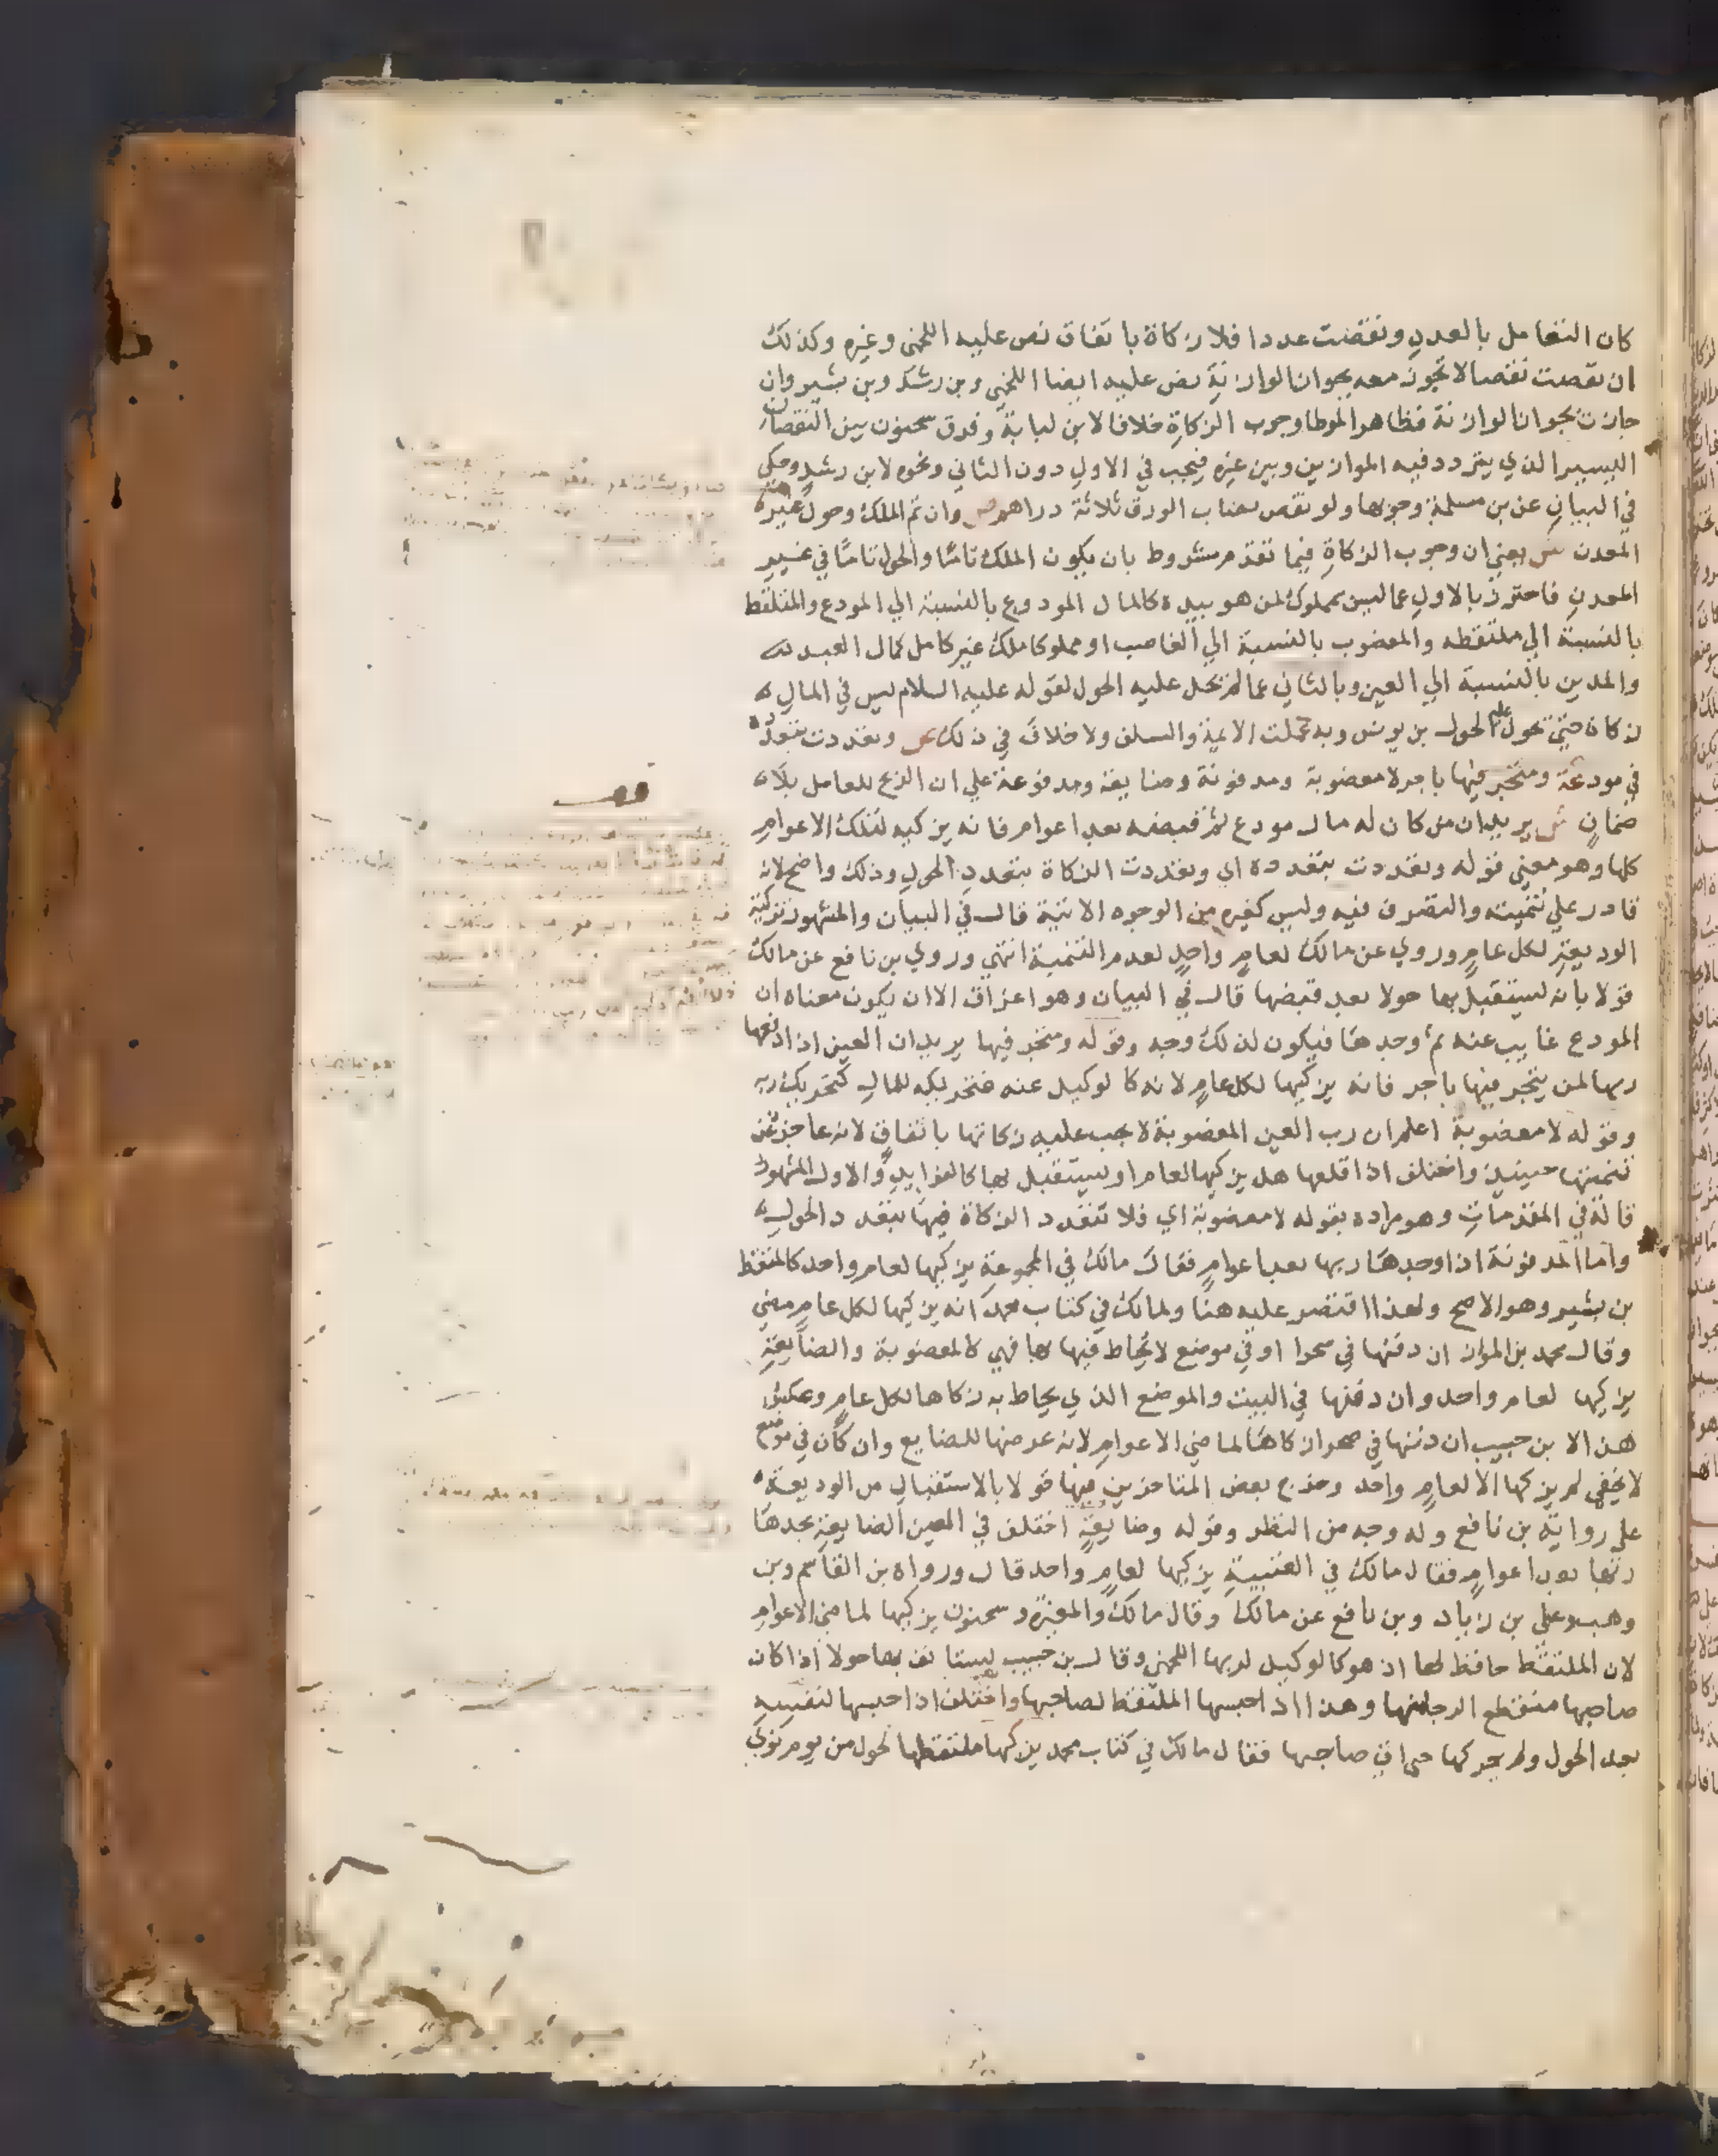 كان التعامل بالعدد ونقصت عددا فلا زكاة باتفاق نص عليه اللخمي وغيره وكذلك
ان نقصت نقصا لا تجوز معه بجواز الوازنة نص عليه ايضا اللخمي وبن رشد وبن بشير وان
جازت بجواز الوازنة فظاهر الموطا وجوب الزكاة خلافا لابن لبابة وفرق سحنون بين النقصان
اليسير الذي يتردد فيه الموازين وبين غيره فيجب في الاول دون الثاني ونحوه لابن رشد وحكي
في البيان عن بن مسلمة وجوبها ولو نقص نصاب الورق ثلاثة دراهم ص وان تم الملك وحول غير
المعدن ش يعني ان وجوب الزكاة فيما تقدم مشروط بان يكون الملك تاما والحول تاما في غير
المعدن فاحترز بالاول عما ليس بمملوك لمن هو بيده كالمال المودوع بالنسبة الي المودع والملتقط
بالنسبة الي ملتقطه والمغصوب بالنسبة الي الغاصب او مملوكا ملك غير كامل كمال العبد
والمدين بالنسبة الي العين وبالثاني عما لم يحل عليه الحول لقوله عليه السلام ليس في المال
زكاة حتي يحول عليه الحول بن يونس وبه عملت الايمة والسلف ولا خلاف في ذلك ص وتعددت بتعدده
في مودعة ومتجر فيها باجر لا مغصوبة ومدفونة وضايعة ومدفوعة علي ان الربح للعامل بلا
ضمان ش يريد ان من كان له مال مودع ثم قبضه بعد اعوام فانه يزكيه لتلك الاعوام
كلها وهو معني قوله وتعددت بتعدده اي وتعددت الزكاة بتعدد الحول وذلك واضح لانه
قادر علي تنميته والتصرف فيه وليس كغيره من الوجوه الاتية قال في البيان والمشهور تزكية
الوديعة لكل عام وروي عن مالك لعام واحد لعدم التنمية انتهي وروي بن نافع عن مالك
قولا بانه يستقبل بها حولا بعد قبضها قال في البيان وهو اغراق الا ان يكون معناه ان
المودع غايب عنه ثم وجدها فيكون لذلك وجه وقوله ومتجر فيها يريد ان العين اذا دفعها
ربها لمن يتجر فيها باجر فانه يزكيها لكل عام لانه كالوكيل عنه فتحريكه للمال كتحريك ربه
وقوله لا مغصوبة اعلم ان رب العين المغصوبة لا يجب عليه زكاتها باتفاق لانه عاجز عن
تنميتها حينيذ واختلف اذا قبضها هل يزكيها لعام او يستقبل بها كالفوايد والاول المشهور
قاله في المقدمات وهو مراده بقوله لا مغصوبة اي فلا تتعدد الزكاة فيها بتعدد الحول
واما المدفونة اذا وجدها ربها بعد اعوام فقال مالك في المجموعة يزكيها لعام واحد كالملتقط
بن بشير وهو الاصح ولهذا اقتصر عليه هنا ولمالك في كتاب محمد انه يزكيها لكل عام مضي
وقال محمد بن المواز ان دفنها في صحرا او في موضع لا يحاط فيها بها فهي كالمغصوبة والضايعة
يزكيها لعام واحد وان دفنها في البيت والموضع الذي يحاط به زكاها لكل عام وعكس
هذا لابن حبيب ان دفنها في صحرا زكاها لماضي الاعوام لانه عرضها للضايع وان كان في موضع
لا يخفي لم يزكها الا لعام واحد وخرج بعض المتاخرين فيها قولا بالاستقبال من الوديعة
علي رواية بن نافع وله وجه من النظر وقوله وضايعة اختلف في العين الضايعة يجدها
ربها بعد اعوام فقال مالك في العتبية يزكيها لعام واحد قال ورواه بن القاسم وبن
وهب وعلي بن زياد وبن نافع عن مالك وقال مالك والمغيرة وسحنون يزكيها لماضي الاعوام
لان الملتقط حافظ لها اذ هو كالوكيل لربها اللخمي وقال بن حبيب يستانف بها حولا اذا كان
صاحبها منقطع الرجا منها وهذا اذا حبسها الملتقط لصاحبها واختلف اذا حبسها لنفسه
بعد الحول ولم يحركها حتي اتي صاحبها فقال مالك في كتاب محمد يزكيها ملتقطها لحول من يوم نوي